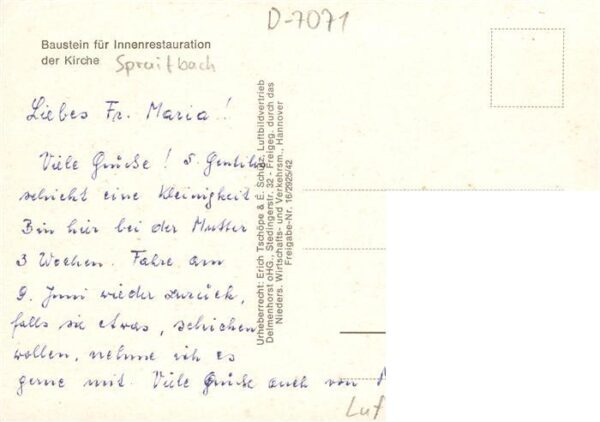 D-7071
Baustein für Innenrestauration
der Kirche Spraitbach
Liebes Fr. Maria!
Viele Grüße! S. Gentilis
schickt eine Kleinigkeit.
Bin hier bei der Mutter
3 Wochen. Fahre am
9. Juni wieder zurück,
falls sie etwas, schicken
wollen, nehme ich es
gerne mit. Viele Grüße auch von
Urheberrecht: Erich Tschöpe & E. Schütz, Luftbildvertrieb
Delmenhorst oHG., Stedingerstr. 32 - Freigeg. durch das
Nieders. Wirtschafts- und Verkehrsm., Hannover
Freigabe-Nr. 16/2925/42
Luf